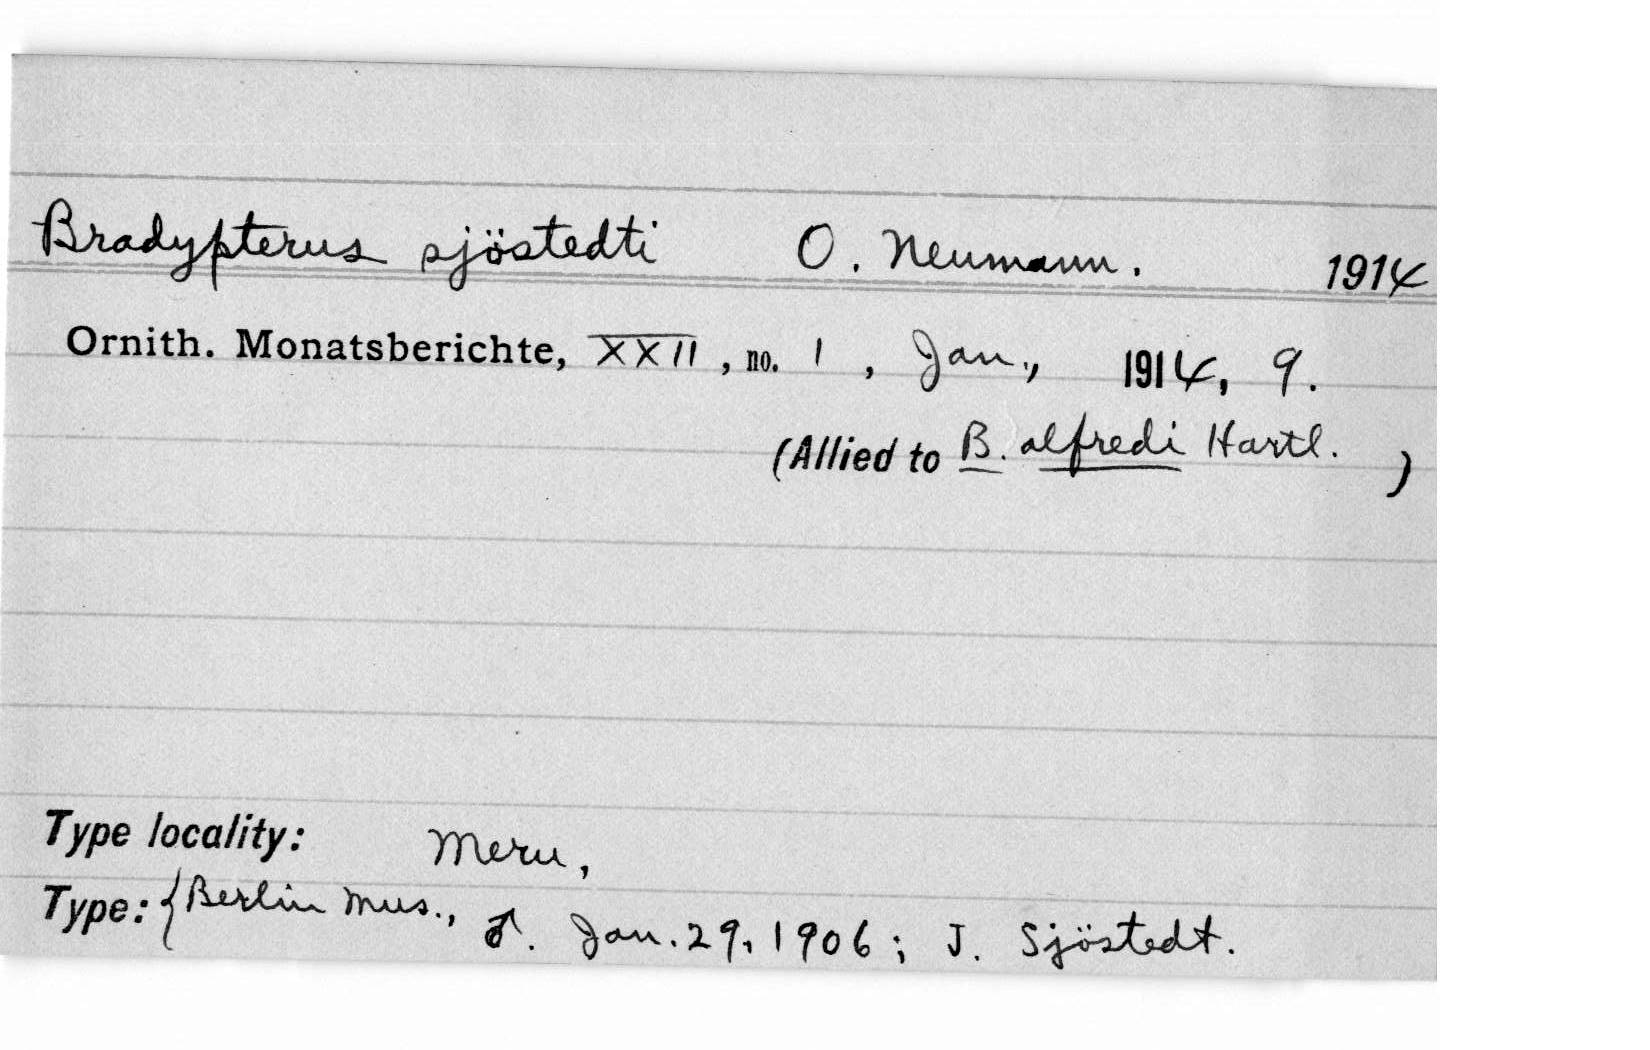 Bradypterus sjöstedti O. Neumann. 1914
Ornith. Monatsberichte, XXII, no. 1, Jan., 1914, 9.
(Allied to B. alfredi Hartl. )
Type locality: Meru,
Type: {Berlin Mus., ♂. Jan. 29, 1906; J. Sjöstedt.